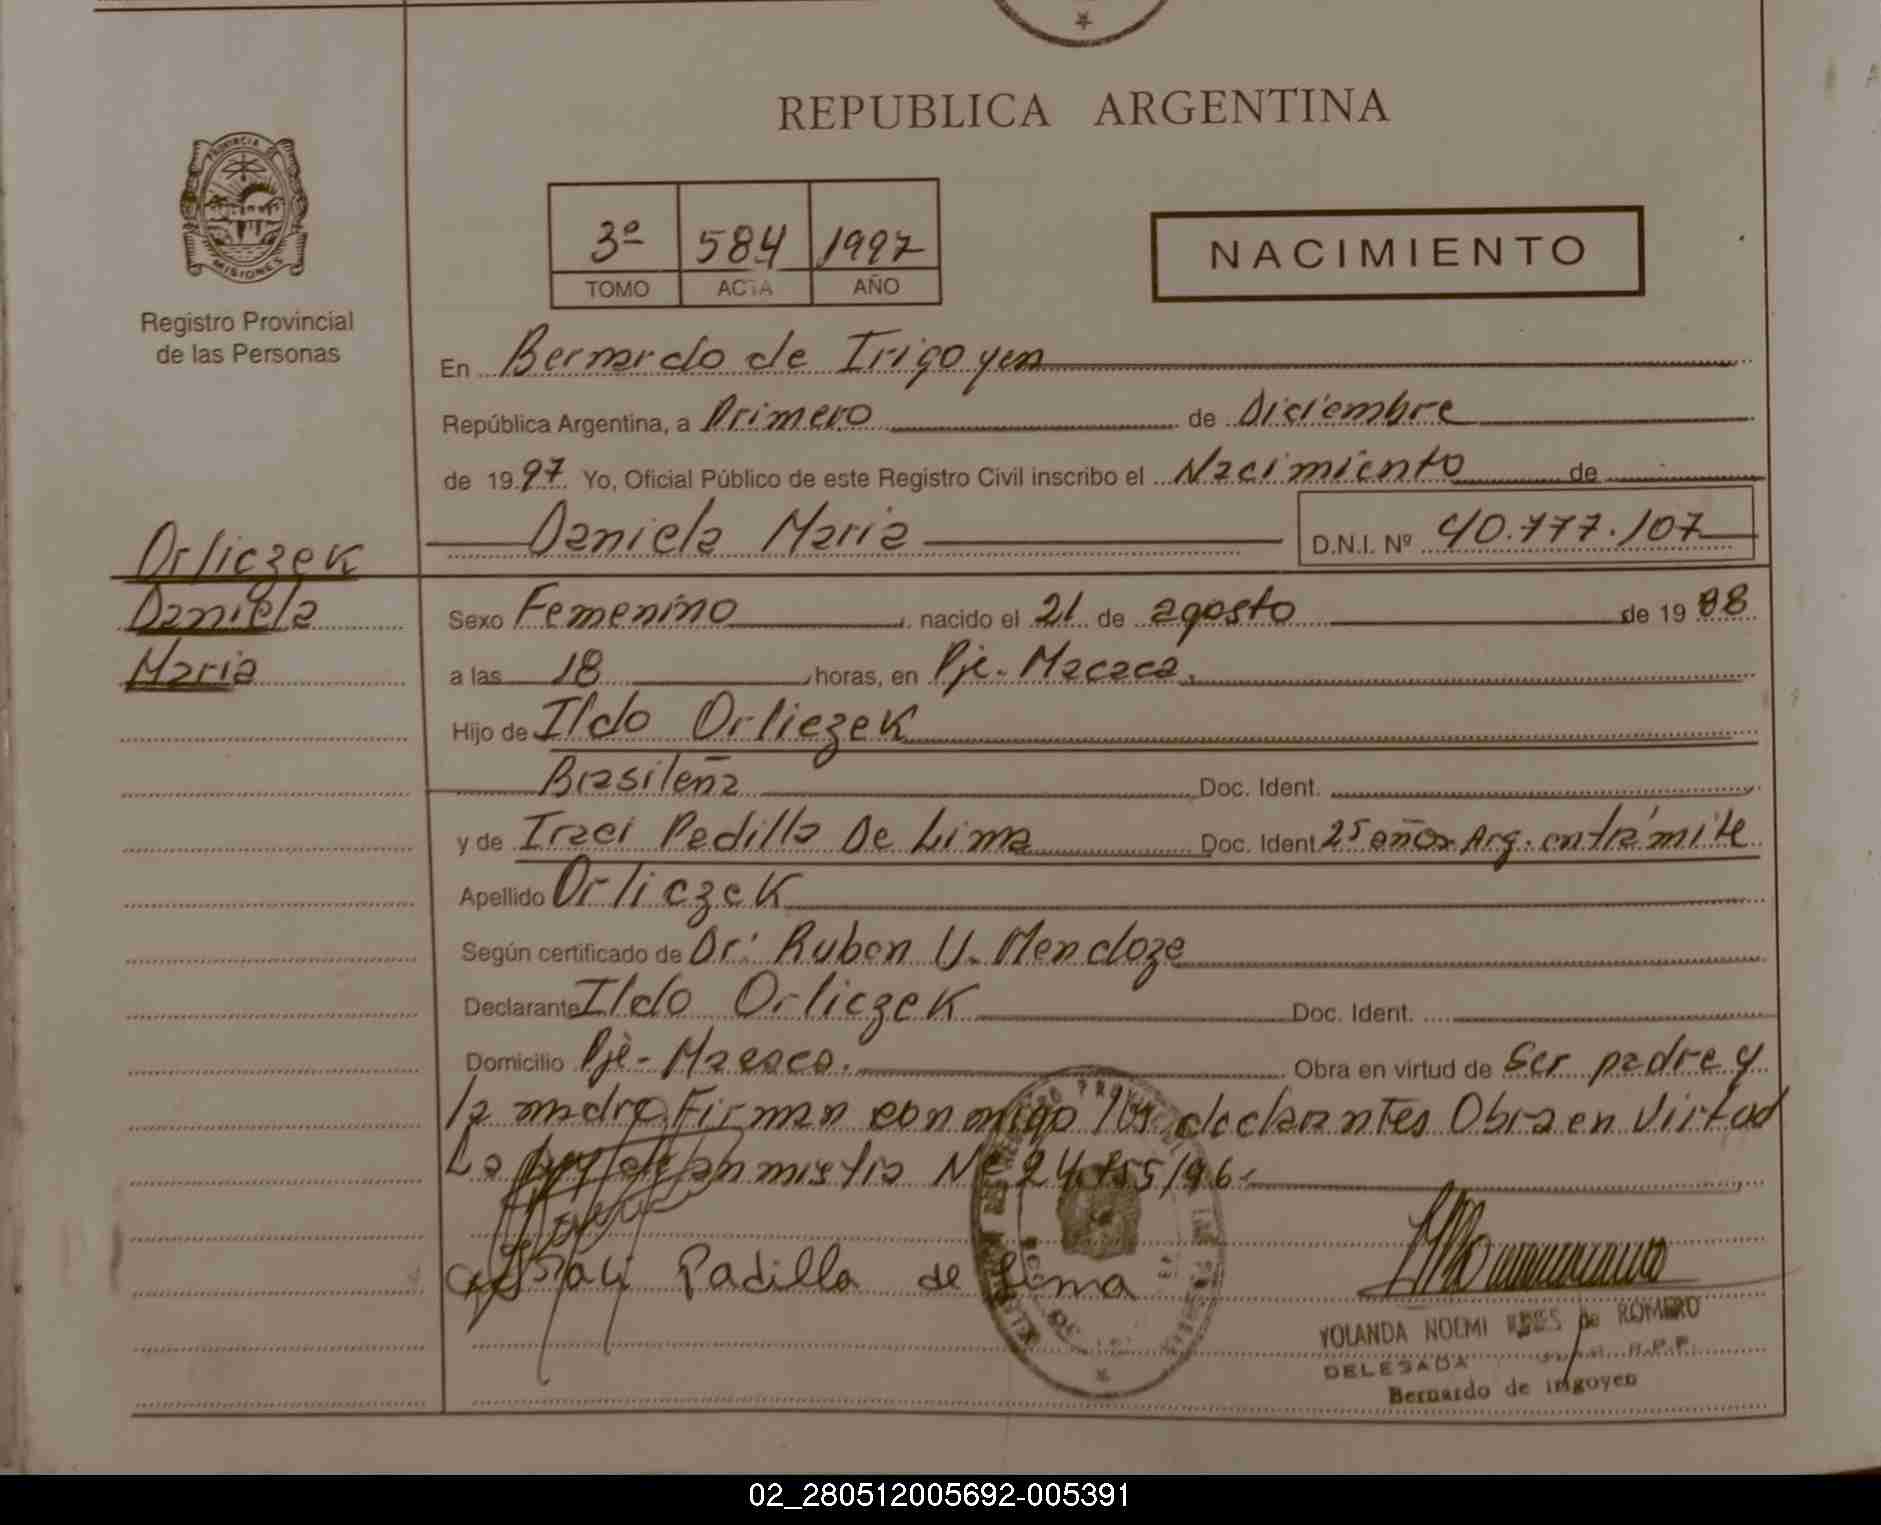 REPUBLICA ARGENTINA
PROVINCIA DE
MISIONES
Registro Provincial
de las Personas
3º 584 1997
TOMO ACTA AÑO
NACIMIENTO
En Bernardo de Irigoyen
República Argentina, a Primero de Diciembre
de 1997 Yo, Oficial Público de este Registro Civil inscribo el Nacimiento de
Daniela Maria D.N.I. Nº 40.777.107
Orliczek
Daniela
Maria
Sexo Femenino, nacido el 21 de agosto de 1988
a las 18 horas, en Pje. Macaca.
Hijo de Ildo Orliczek
Brasileña Doc. Ident.
y de Iraci Padilla De Lima Doc. Ident 25 años Arg. en trámite
Apellido Orliczek
Según certificado de Dr: Ruben U. Mendoze
Declarante Ildo Orliczek Doc. Ident.
Domicilio Pje- Macaca. Obra en virtud de Ser padre y
la madre, Firman conmigo los declarantes Obra en Virtud
La ley de anmistia Nº 24.855/96-
Padilla de Lima
YOLANDA NOEMI de ROMERO
DELEGADA R.P.P.
Bernardo de irigoyen
02_280512005692-005391